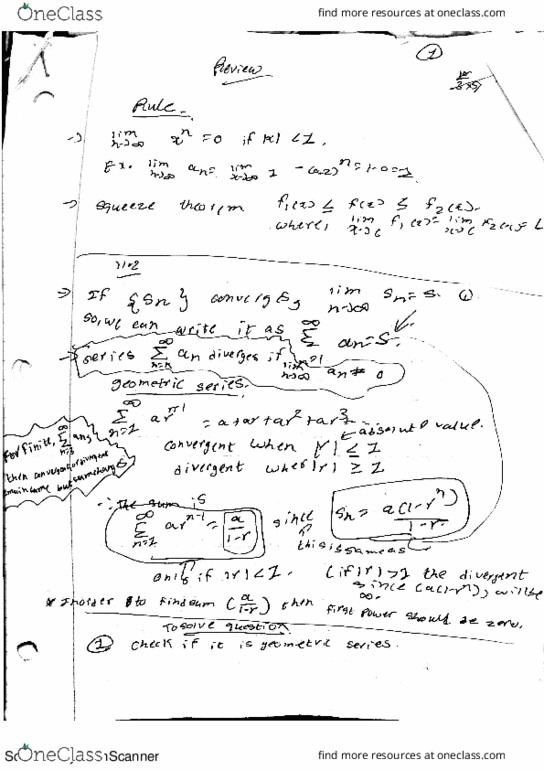 OneClass
find more resources at oneclass.com
1
Review
Rule
→ lim n→∞ x^n = 0 if |x| < 1.
Ex. lim n→∞ an = lim x→∞ 1 - (0.2)^n = 1-0 = 1
→ squeeze theorem f1(x) ≤ f(x) ≤ f2(x).
where, lim x→c f1(x) = lim x→c f2(x) = L
11.2
→ If {Sn} converges, lim n→∞ Sn = S.
So, we can write it as ∞ Σ n=1 an = S
→ series ∞ Σ an diverges if lim n→∞ an ≠ 0
geometric series.
∞ Σ n=1 ar^n-1 = a+ar+ar^2+ar^3
absolute value.
convergent when |r| ≤ 1
divergent when |r| ≥ 1
For finite, ∞ Σ an,
then convergent or divergent
remain same but sum change
∴ The sum is
∞ Σ n=1 ar^n-1 = a/1-r since Sn = a(1-r^n)/1-r
this is same as
only if |r| < 1. (if |r| > 1 the divergent
since (a(1-r^n), will be
∞.
* Inorder to find sum (a/1-r) then first power should be zero.
To solve question
1 Check if it is geometric series.
Scanner
OneClass
find more resources at oneclass.com